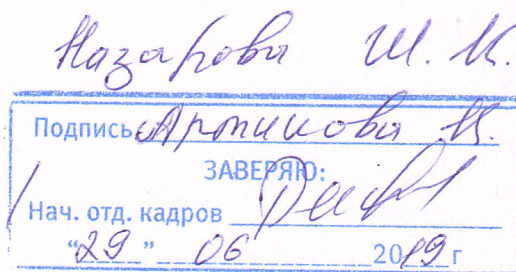 Назарова Ш. К.
Подпись Артикова М.
ЗАВЕРЯЮ:
Нач. отд. кадров
"29" 06 2019 г